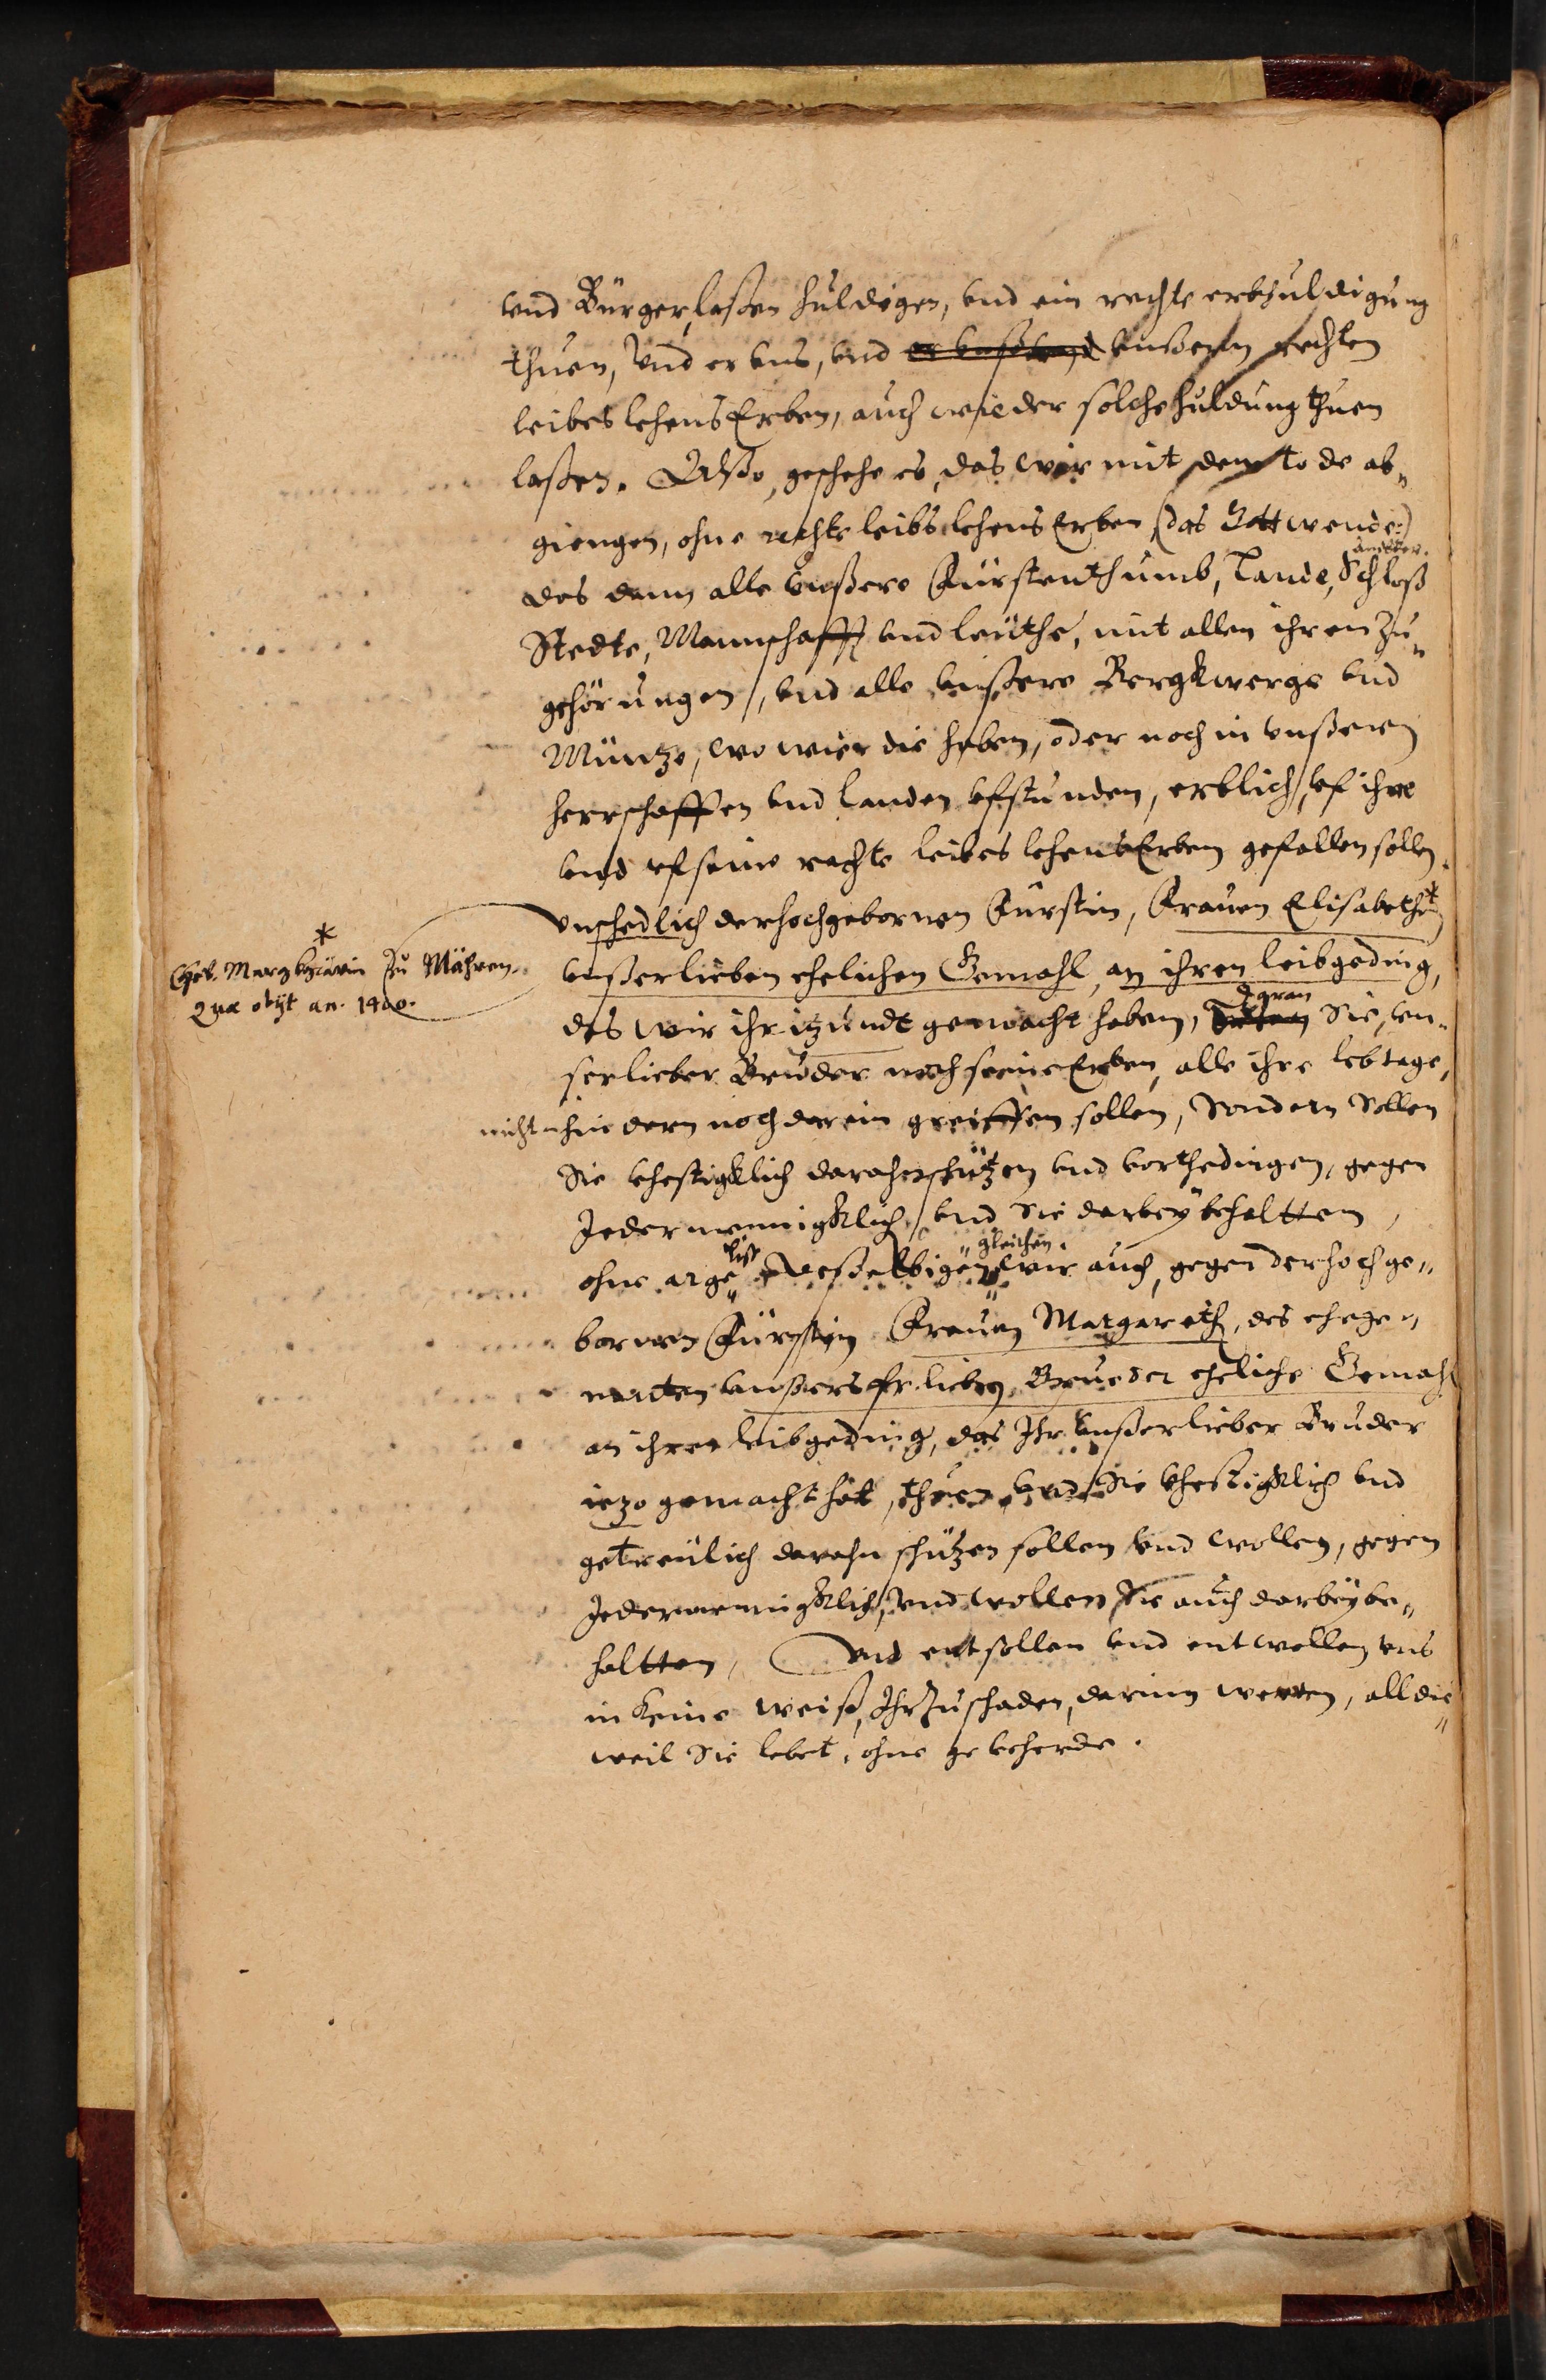 vnd Bürger, laßen huldigen, vnd ein rechte erbhuldigung
thuen, Vnd er vns, vnd vnßern rechten
leibes lehens Erben, auch wieder solche huldung thuen
laßen. Alßo, geschehe es, das wir mit dem tode ab„
giengen, ohne rechte leibs lehens Erben (das Gott wende:)
das dann alle vnßere Fürstenthumb, Lande, Schloß
Stedte, Mannschafft vnd leuthe, mit allen ihren Zu„
gehörungen, vnd alle vnßere Bergkwerge vnd
Müntze, wo wier die haben, oder noch in vnßeren
herrschafften vnd landen vfstunden, erblich, vf ihne
vnd vf seine rechte leibes lehens Erben gefallen sollen,
vnschedlich der hochgebornen Fürstin, Frauen Elisabethen*
vnßer lieben ehelichen Gemahl, an ihren leibgeding,
*
Geb. Marggräfin Zu Mähren.
quæ obijt an. 1400.
das wir ihr itzundt gemacht haben, daran Sie, vn„
ser lieber Bruder noch seine Erben, alle ihre lebtage,
nicht hindern noch darein greiffen sollen, Sondern Sollen
Sie vhestigklich daran schützen vnd vorthedingen, gegen
Jedermennigklich, vnd Sie darbey behaltten,
ohne arge list deßelbigen gleichen wir auch, gegen der hochge„
bornen Fürstin Frauen Margareth, des ehege„
nanten vnßers lieben Brueder eheliche Gemahl
an ihren leibgeding, das Ihr vnßer lieber Bruder
ietzo gemacht hat, thuen, vnd Sie vhestigklich vnd
getreulich darahn schützen sollen vnd wollen, gegen
Jedermennigklich, vnd wollen Sie auch darbey be„
haltten, Vnd entsollen vnd entwollen vns
in keine weiß, Ihr Zu schaden, darinn werren, all die„
weil Sie lebet, ohne geveherde.